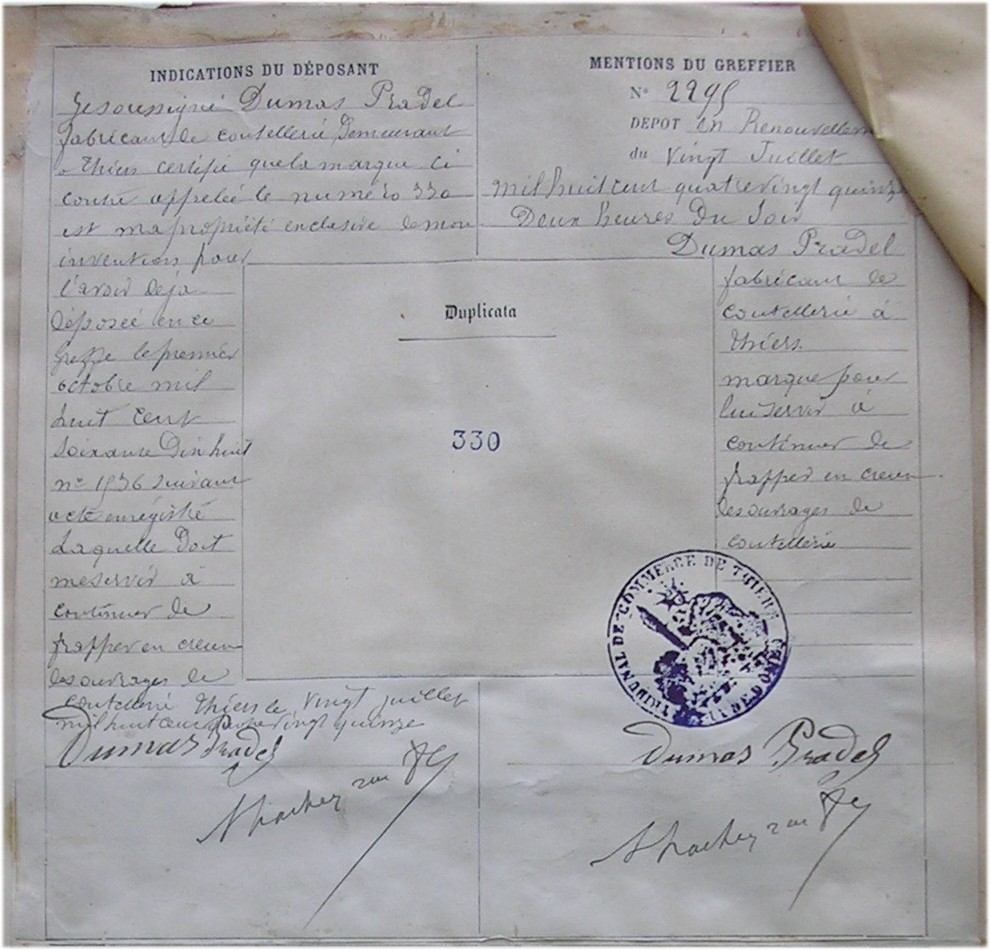 INDICATIONS DU DÉPOSANT
Je soussigné Dumas Pradel
fabricant de coutellerie Demeurant
a Thiers certifie que la marque ci
contre appelée le numéro 330
est ma propriété exclusive de mon
invention pour
l'avoir déjà
déposée en ce
greffe le premier
octobre mil
huit cent
soixante Dix huit
n° 1936 suivant
acte enrégistré
Laquelle Doit
me servir à
continuer de
frapper en creux
les ouvrages de
coutellerie Thiers le Vingt juillet
mil huit cent quatre vingt quinze
Dumas Pradel
MENTIONS DU GREFFIER
N° 2295
DEPOT en Renouvellem
du Vingt Juillet
mil huit cent quatre vingt quinze
Deux heures Du Soir
Dumas Pradel
fabricant de
coutellerie à
Thiers.
marque pour
lui servir à
continuer de
frapper en creux
les ouvrages de
coutellerie
Duplicata
330
TRIBUNAL DE COMMERCE DE THIERS
Dumas Pradel